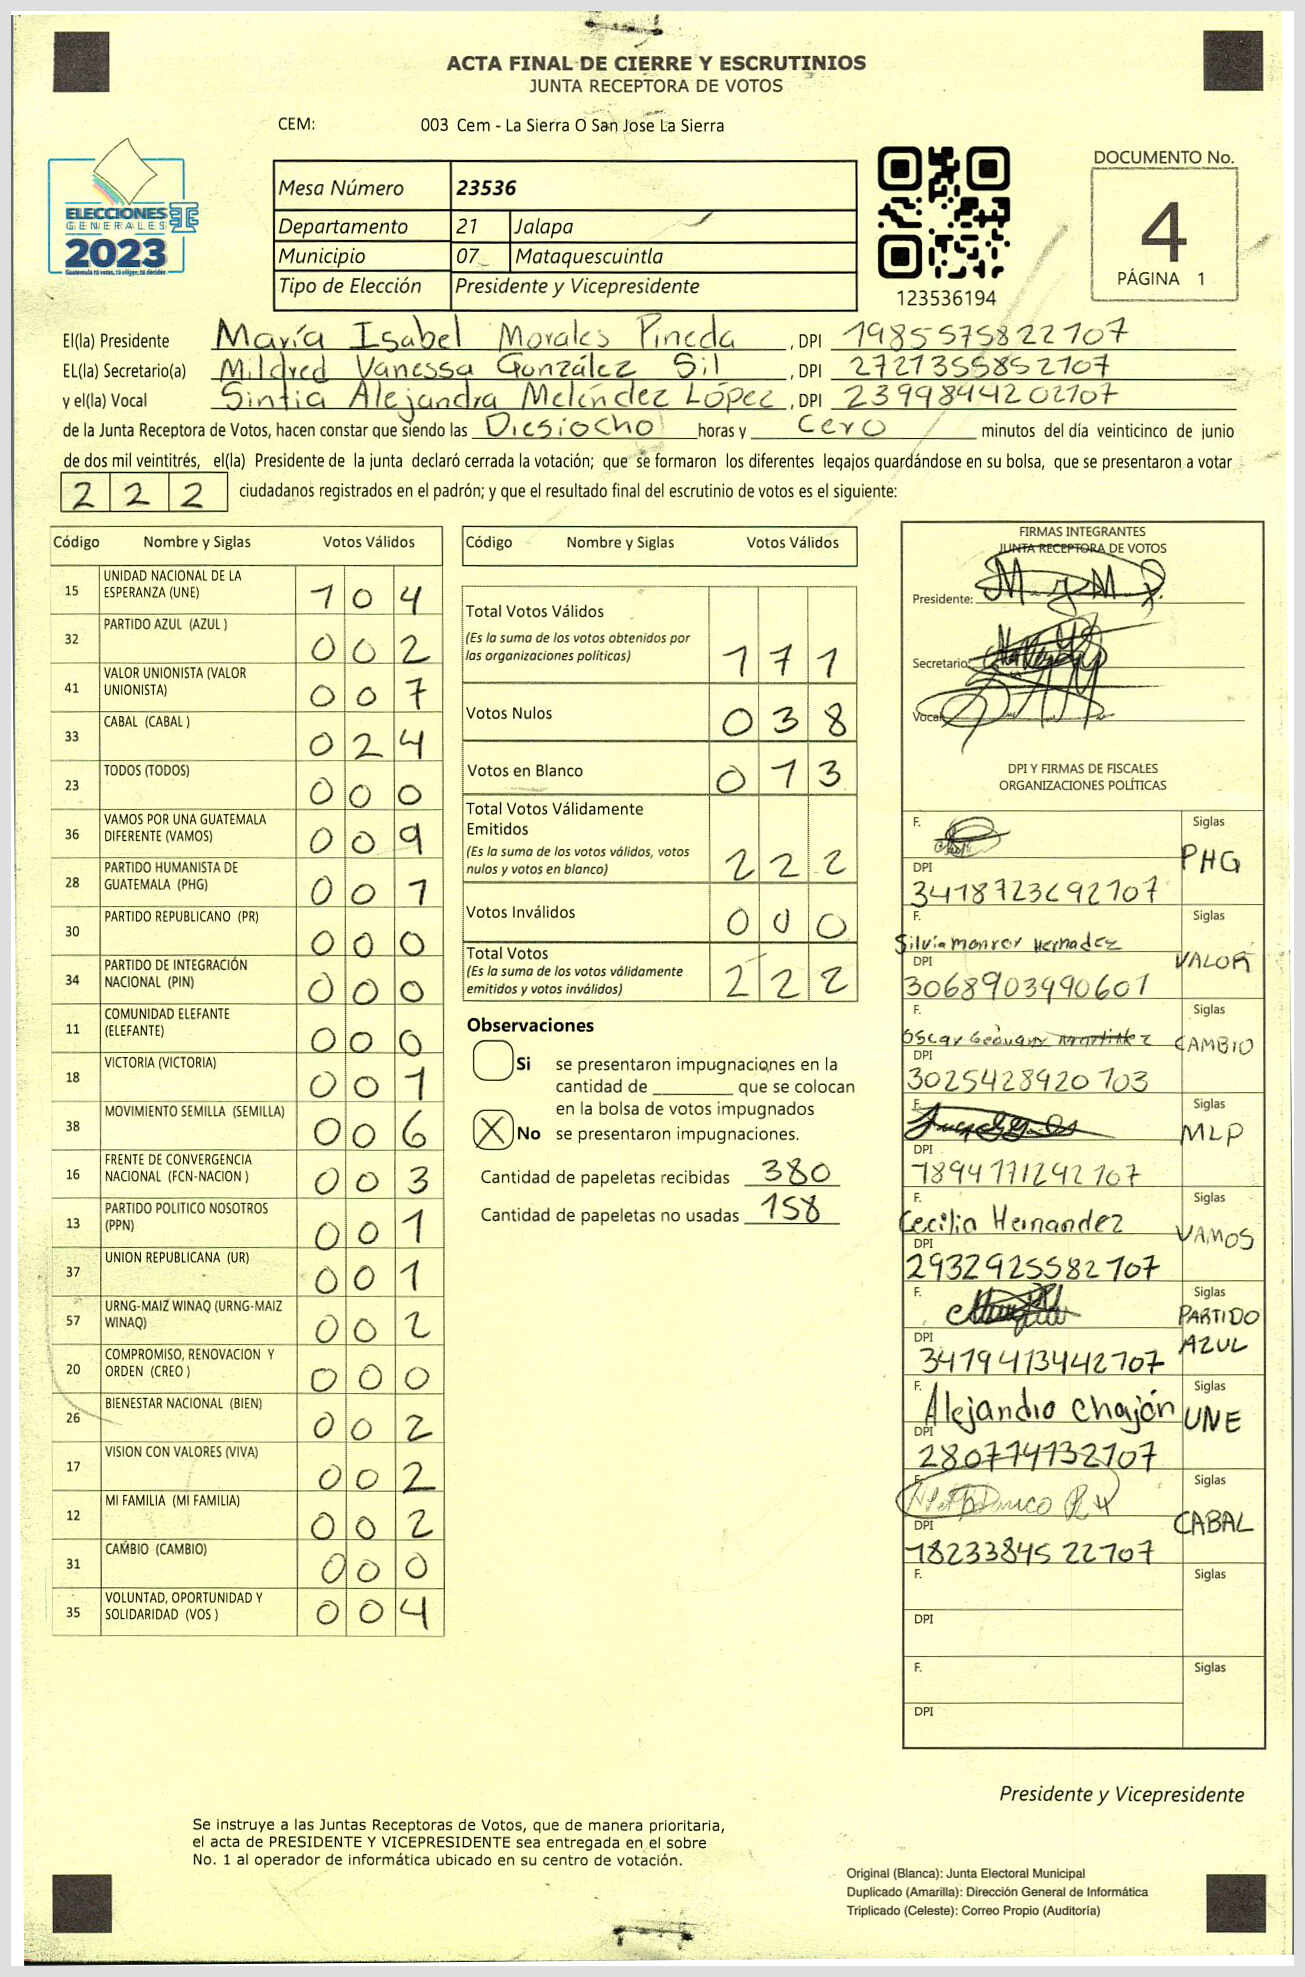 ACTA FINAL DE CIERRE Y ESCRUTINIOS
JUNTA RECEPTORA DE VOTOS
CEM: 003 Cem - La Sierra O San Jose La Sierra
ELECCIONES
GENERALES
2023
Guatemala tú votas, tú eliges, tú decides
Mesa Número 23536
Departamento 21 Jalapa
Municipio 07 Mataquescuintla
Tipo de Elección Presidente y Vicepresidente
123536194
DOCUMENTO No.
4
PÁGINA 1
El(la) Presidente María Isabel Morales Pineda, DPI 1985575822107
EL(la) Secretario(a) Mildred Vanessa González Sil, DPI 2721355852107
y el(la) Vocal Sintia Alejandra Meléndez López, DPI 2399844202107
de la Junta Receptora de Votos, hacen constar que siendo las Diesiocho horas y Cero minutos del día veinticinco de junio
de dos mil veintitrés, el(la) Presidente de la junta declaró cerrada la votación; que se formaron los diferentes legajos guardándose en su bolsa, que se presentaron a votar
2 2 2 ciudadanos registrados en el padrón; y que el resultado final del escrutinio de votos es el siguiente:
Código Nombre y Siglas Votos Válidos
15 UNIDAD NACIONAL DE LA ESPERANZA (UNE) 1 0 4
32 PARTIDO AZUL (AZUL ) 0 0 2
41 VALOR UNIONISTA (VALOR UNIONISTA) 0 0 7
33 CABAL (CABAL ) 0 2 4
23 TODOS (TODOS) 0 0 0
36 VAMOS POR UNA GUATEMALA DIFERENTE (VAMOS) 0 0 9
28 PARTIDO HUMANISTA DE GUATEMALA (PHG) 0 0 1
30 PARTIDO REPUBLICANO (PR) 0 0 0
34 PARTIDO DE INTEGRACIÓN NACIONAL (PIN) 0 0 0
11 COMUNIDAD ELEFANTE (ELEFANTE) 0 0 0
18 VICTORIA (VICTORIA) 0 0 1
38 MOVIMIENTO SEMILLA (SEMILLA) 0 0 6
16 FRENTE DE CONVERGENCIA NACIONAL (FCN-NACION ) 0 0 3
13 PARTIDO POLITICO NOSOTROS (PPN) 0 0 1
37 UNION REPUBLICANA (UR) 0 0 1
57 URNG-MAIZ WINAQ (URNG-MAIZ WINAQ) 0 0 2
20 COMPROMISO, RENOVACION Y ORDEN (CREO ) 0 0 0
26 BIENESTAR NACIONAL (BIEN) 0 0 2
17 VISION CON VALORES (VIVA) 0 0 2
12 MI FAMILIA (MI FAMILIA) 0 0 2
31 CAMBIO (CAMBIO) 0 0 0
35 VOLUNTAD, OPORTUNIDAD Y SOLIDARIDAD (VOS ) 0 0 4
Código Nombre y Siglas Votos Válidos
Total Votos Válidos
(Es la suma de los votos obtenidos por
las organizaciones políticas) 1 7 1
Votos Nulos 0 3 8
Votos en Blanco 0 1 3
Total Votos Válidamente
Emitidos
(Es la suma de los votos válidos, votos
nulos y votos en blanco) 2 2 2
Votos Inválidos 0 0 0
Total Votos
(Es la suma de los votos válidamente
emitidos y votos inválidos) 2 2 2
Observaciones
Si se presentaron impugnaciones en la
cantidad de ________ que se colocan
en la bolsa de votos impugnados
X No se presentaron impugnaciones.
Cantidad de papeletas recibidas 380
Cantidad de papeletas no usadas 158
FIRMAS INTEGRANTES
JUNTA RECEPTORA DE VOTOS
Presidente:
Secretario:
Vocal:
DPI Y FIRMAS DE FISCALES
ORGANIZACIONES POLÍTICAS
F. Siglas PHG
DPI 3418723692107
F. Silvia Monroy Hernadez Siglas VALOR
DPI 3068903990601
F. Oscar Geovany Siglas CAMBIO
DPI 3025428920703
F. Siglas MLP
DPI 1894171292107
F. Cecilia Hernandez Siglas VAMOS
DPI 2932925582107
F. Siglas PARTIDO AZUL
DPI 3419413442107
F. Alejandro Chajón Siglas UNE
DPI 280774132107
F. Siglas CABAL
DPI 1823384522107
F. Siglas
DPI
F. Siglas
DPI
Presidente y Vicepresidente
Se instruye a las Juntas Receptoras de Votos, que de manera prioritaria,
el acta de PRESIDENTE Y VICEPRESIDENTE sea entregada en el sobre
No. 1 al operador de informática ubicado en su centro de votación.
Original (Blanca): Junta Electoral Municipal
Duplicado (Amarilla): Dirección General de Informática
Triplicado (Celeste): Correo Propio (Auditoría)